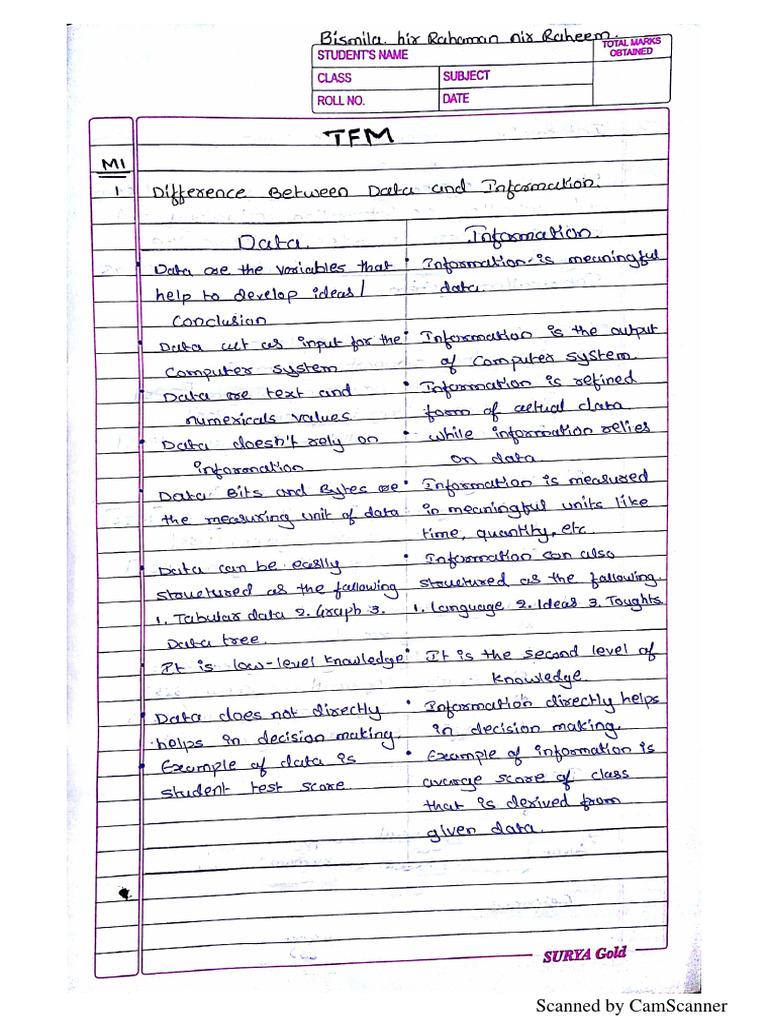 Bismila hir Rahaman nir Raheem.
STUDENT'S NAME
TOTAL MARKS
OBTAINED
CLASS
SUBJECT
ROLL NO.
DATE
TFM
M1
1 Difference Between Data and Information.
Data
Information.
• Data are the variables that
help to develop ideas/
Conclusion
• Information is meaningful
data.
• Data act as input for the
Computer system
• Information is the output
of Computer system.
• Data are text and
numericals values
• Information is refined
form of actual data
• Data doesn't rely on
information
• while information relies
on data.
• Data Bits and Bytes are
the measuring unit of data
• Information is measured
in meaningful units like
time, quantity, etc.
• Data can be easily
structured as the following
1. Tabular data 2. Graph 3.
Data tree.
• Information can also
structured as the following.
1. Language 2. Ideas 3. Toughts
• It is low-level knowledge
• It is the second level of
knowledge.
• Data does not directly
helps in decision making.
• Information directly helps
in decision making.
• Example of data is
student test score.
• Example of information is
average score of class
that is derived from
given data.
SURYA Gold
Scanned by CamScanner